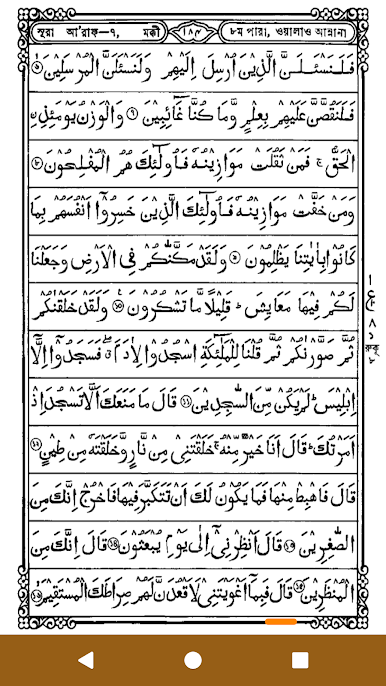 সূরা আ'রাফ—৭, মক্কী ١٨٩ ৮ম পারা, ওয়ালাও আন্নানা
فَلَنَسْـَٔلَنَّ الَّذِيْنَ اُرْسِلَ اِلَيْهِمْ وَلَنَسْـَٔلَنَّ الْمُرْسَلِيْنَ ۝٦
فَلَنَقُصَّنَّ عَلَيْهِمْ بِعِلْمٍ وَّمَا كُنَّا غَآئِبِيْنَ ۝٧ وَالْوَزْنُ يَوْمَئِذِ ۨ
الْحَقُّ ۚ فَمَنْ ثَقُلَتْ مَوَازِيْنُهٗ فَاُولٰٓئِكَ هُمُ الْمُفْلِحُوْنَ ۝٨
وَمَنْ خَفَّتْ مَوَازِيْنُهٗ فَاُولٰٓئِكَ الَّذِيْنَ خَسِرُوْٓا اَنْفُسَهُمْ بِمَا
كَانُوْا بِاٰيٰتِنَا يَظْلِمُوْنَ ۝٩ وَلَقَدْ مَكَّنّٰكُمْ فِي الْاَرْضِ وَجَعَلْنَا
لَكُمْ فِيْهَا مَعَايِشَ ؕ قَلِيْلًا مَّا تَشْكُرُوْنَ ۝١٠ وَلَقَدْ خَلَقْنٰكُمْ
ثُمَّ صَوَّرْنٰكُمْ ثُمَّ قُلْنَا لِلْمَلٰٓئِكَةِ اسْجُدُوْا لِاٰدَمَ ۖ فَسَجَدُوْٓا اِلَّآ
اِبْلِيْسَ ؕ لَمْ يَكُنْ مِّنَ السّٰجِدِيْنَ ۝١١ قَالَ مَا مَنَعَكَ اَلَّا تَسْجُدَ اِذْ
اَمَرْتُكَ ؕ قَالَ اَنَا خَيْرٌ مِّنْهُ ۚ خَلَقْتَنِيْ مِنْ نَّارٍ وَّخَلَقْتَهٗ مِنْ طِيْنٍ ۝١٢
قَالَ فَاهْبِطْ مِنْهَا فَمَا يَكُوْنُ لَكَ اَنْ تَتَكَبَّرَ فِيْهَا فَاخْرُجْ اِنَّكَ مِنَ
الصّٰغِرِيْنَ ۝١٣ قَالَ اَنْظِرْنِيْٓ اِلٰى يَوْمِ يُبْعَثُوْنَ ۝١٤ قَالَ اِنَّكَ مِنَ
الْمُنْظَرِيْنَ ۝١٥ قَالَ فَبِمَآ اَغْوَيْتَنِيْ لَاَقْعُدَنَّ لَهُمْ صِرَاطَكَ الْمُسْتَقِيْمَ ۝١٦